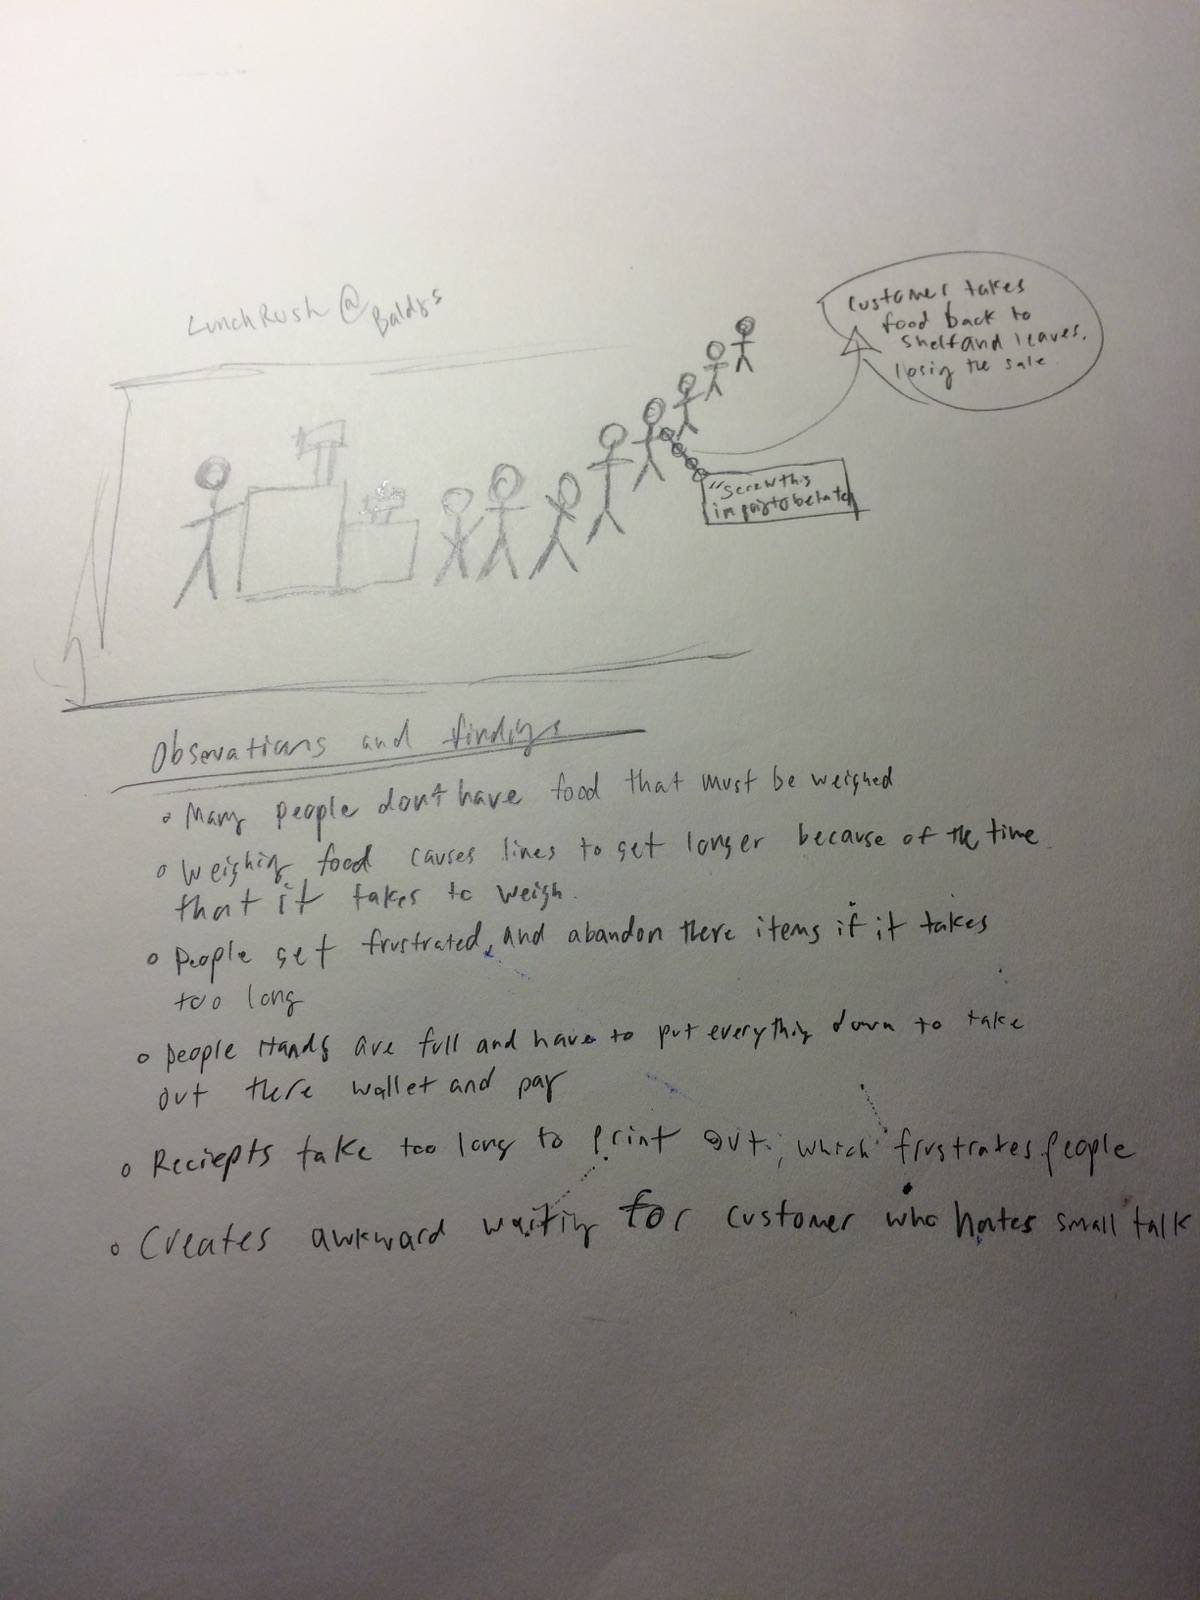 Lunch Rush @ Baldys
Customer takes
food back to
shelf and leaves,
losing the sale
"Screw this
im
Obsevations and findings
◦ Many people dont have food that must be weighed
◦ Weighing food causes lines to get longer because of the time
that it takes to weigh.
◦ People get frustrated, and abandon there items if it takes
too long
◦ people Hands are full and have to put everything down to take
out there wallet and pay
◦ Reciepts take too long to print out, which frustrates people
◦ Creates awkward waiting for customer who hates small talk